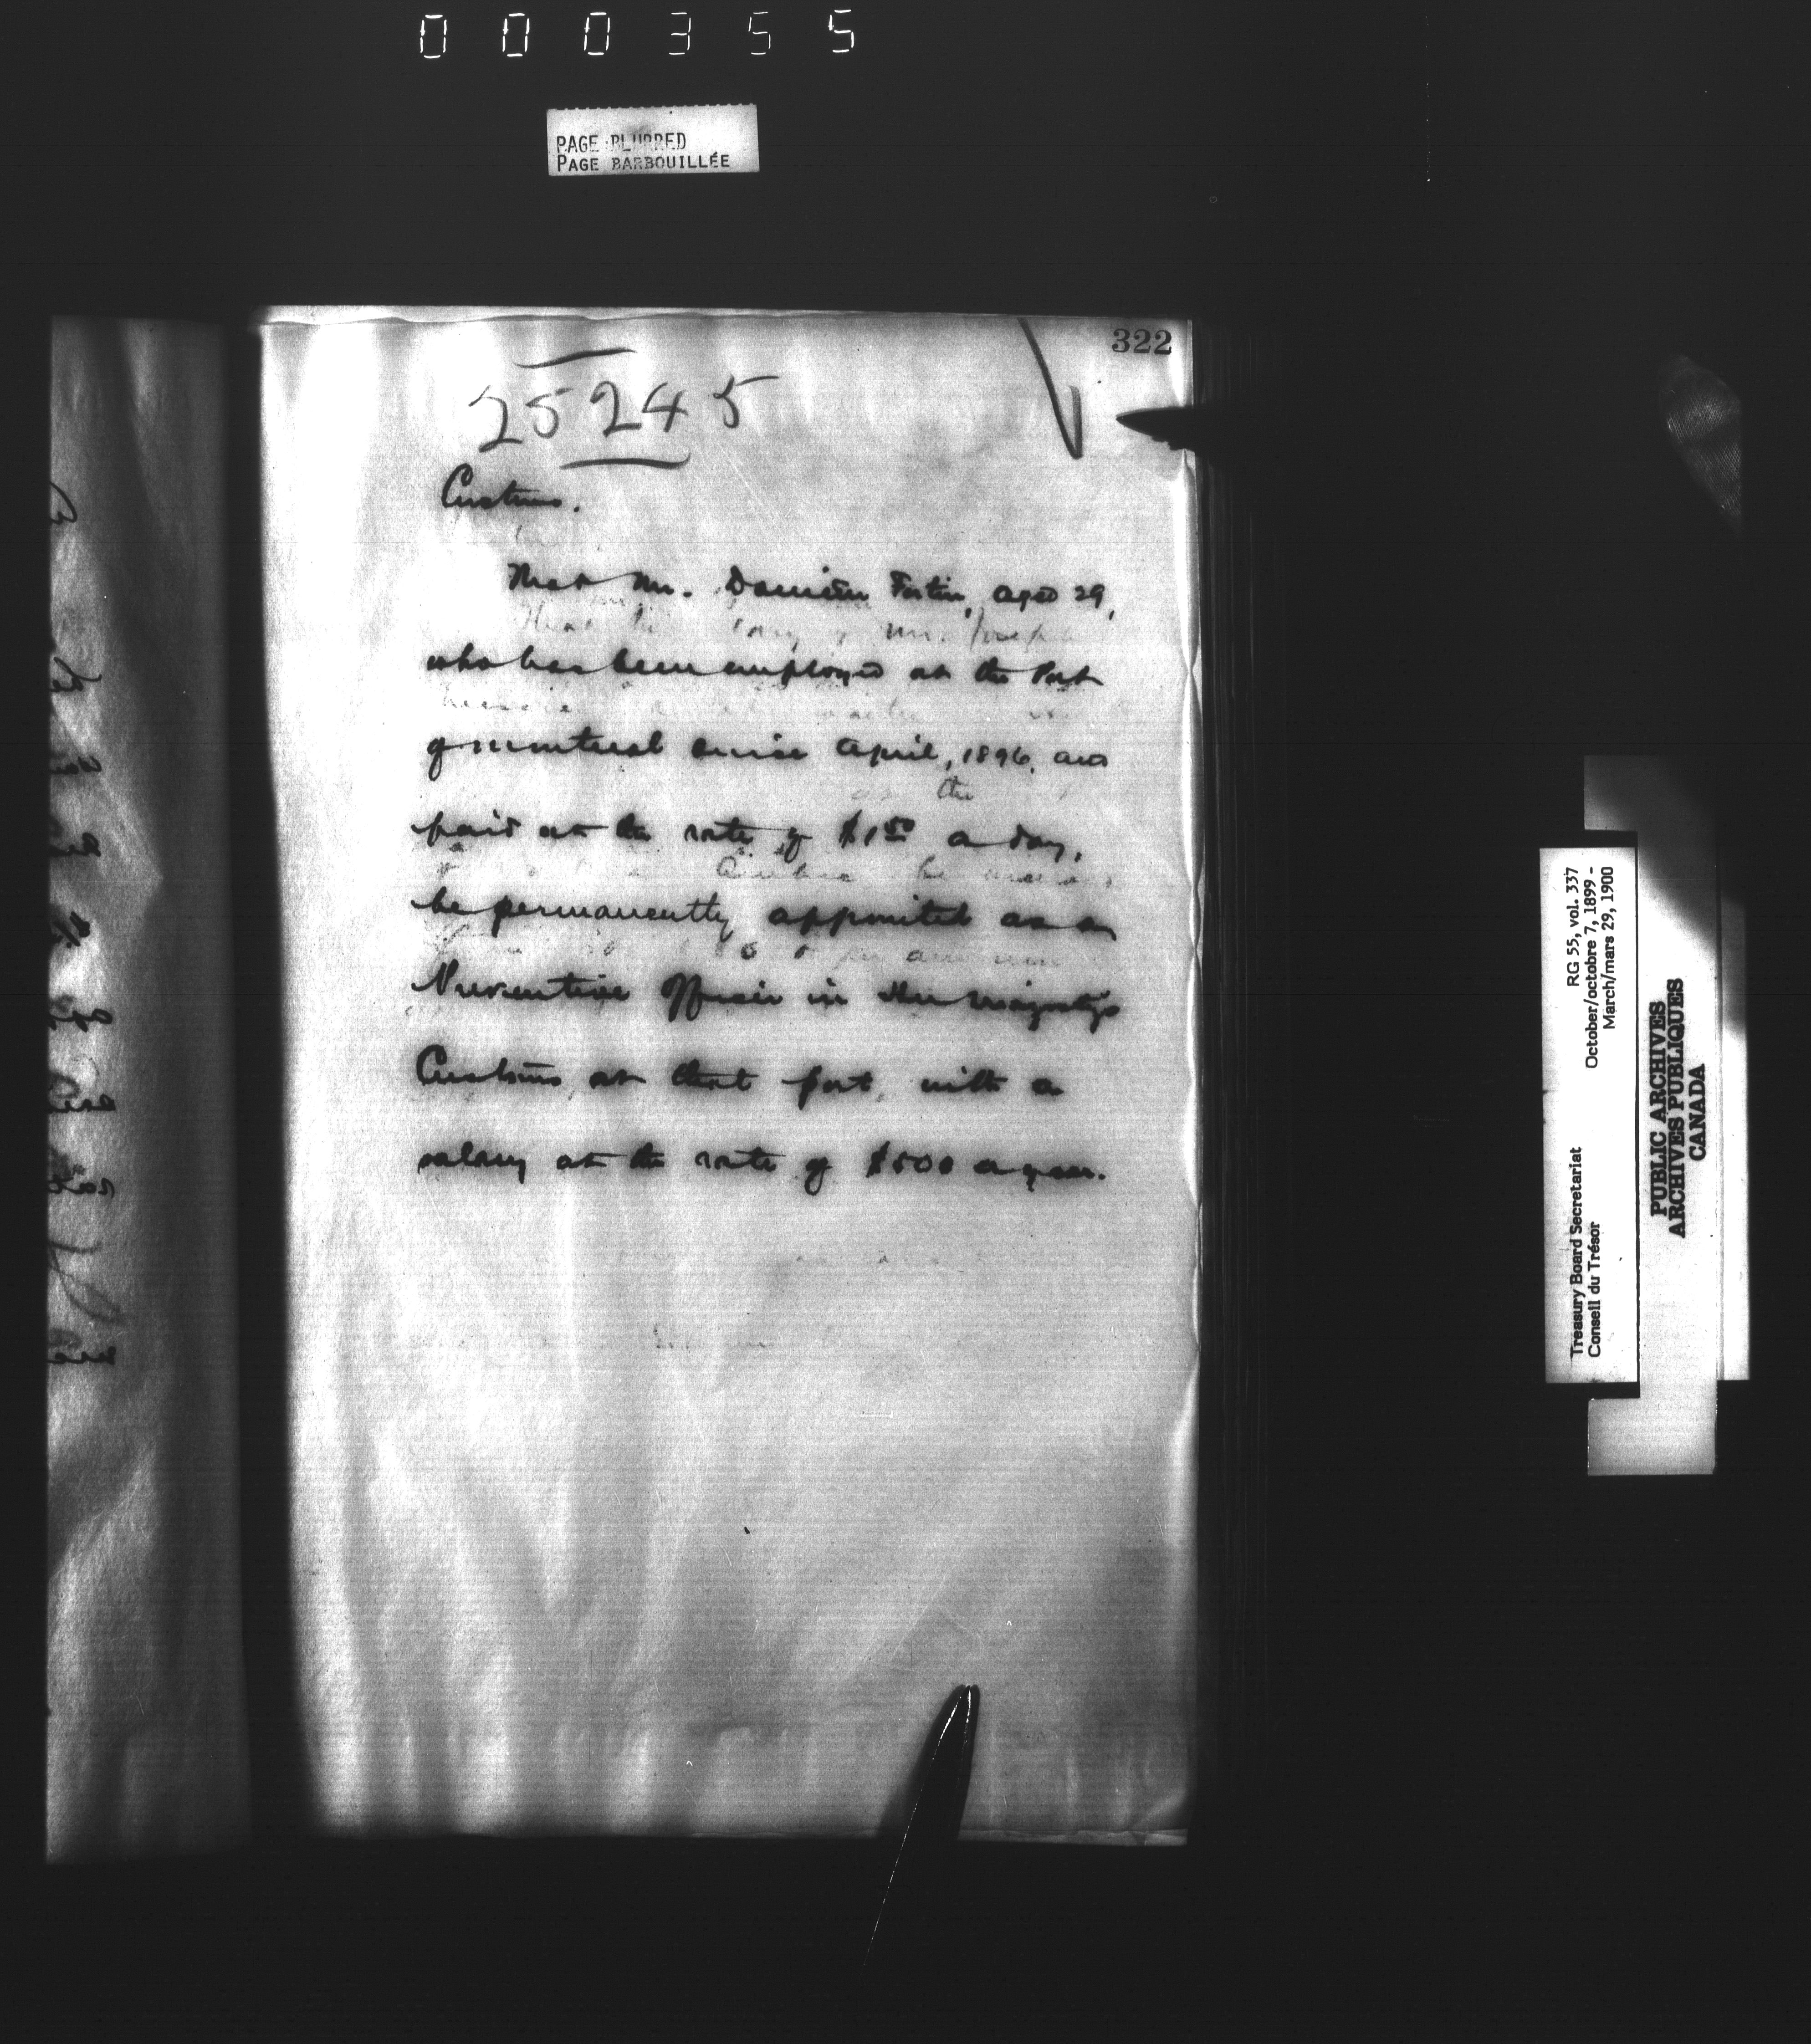 000355
PAGE BLURRED
PAGE BARBOUILLÉE
322
25245
Customs.
That Mr. Damien Fortin, aged 29,
who has been employed at the Port
of Montreal since April, 1896, and
paid at the rate of $1.50 a day,
be permanently appointed as a
Preventive Officer in Her Majesty's
Customs at that port, with a
salary at the rate of $500 a year.
RG 55, vol. 337
October/octobre 7, 1899 -
March/mars 29, 1900
Treasury Board Secretariat
Conseil du Trésor
PUBLIC ARCHIVES
ARCHIVES PUBLIQUES
CANADA